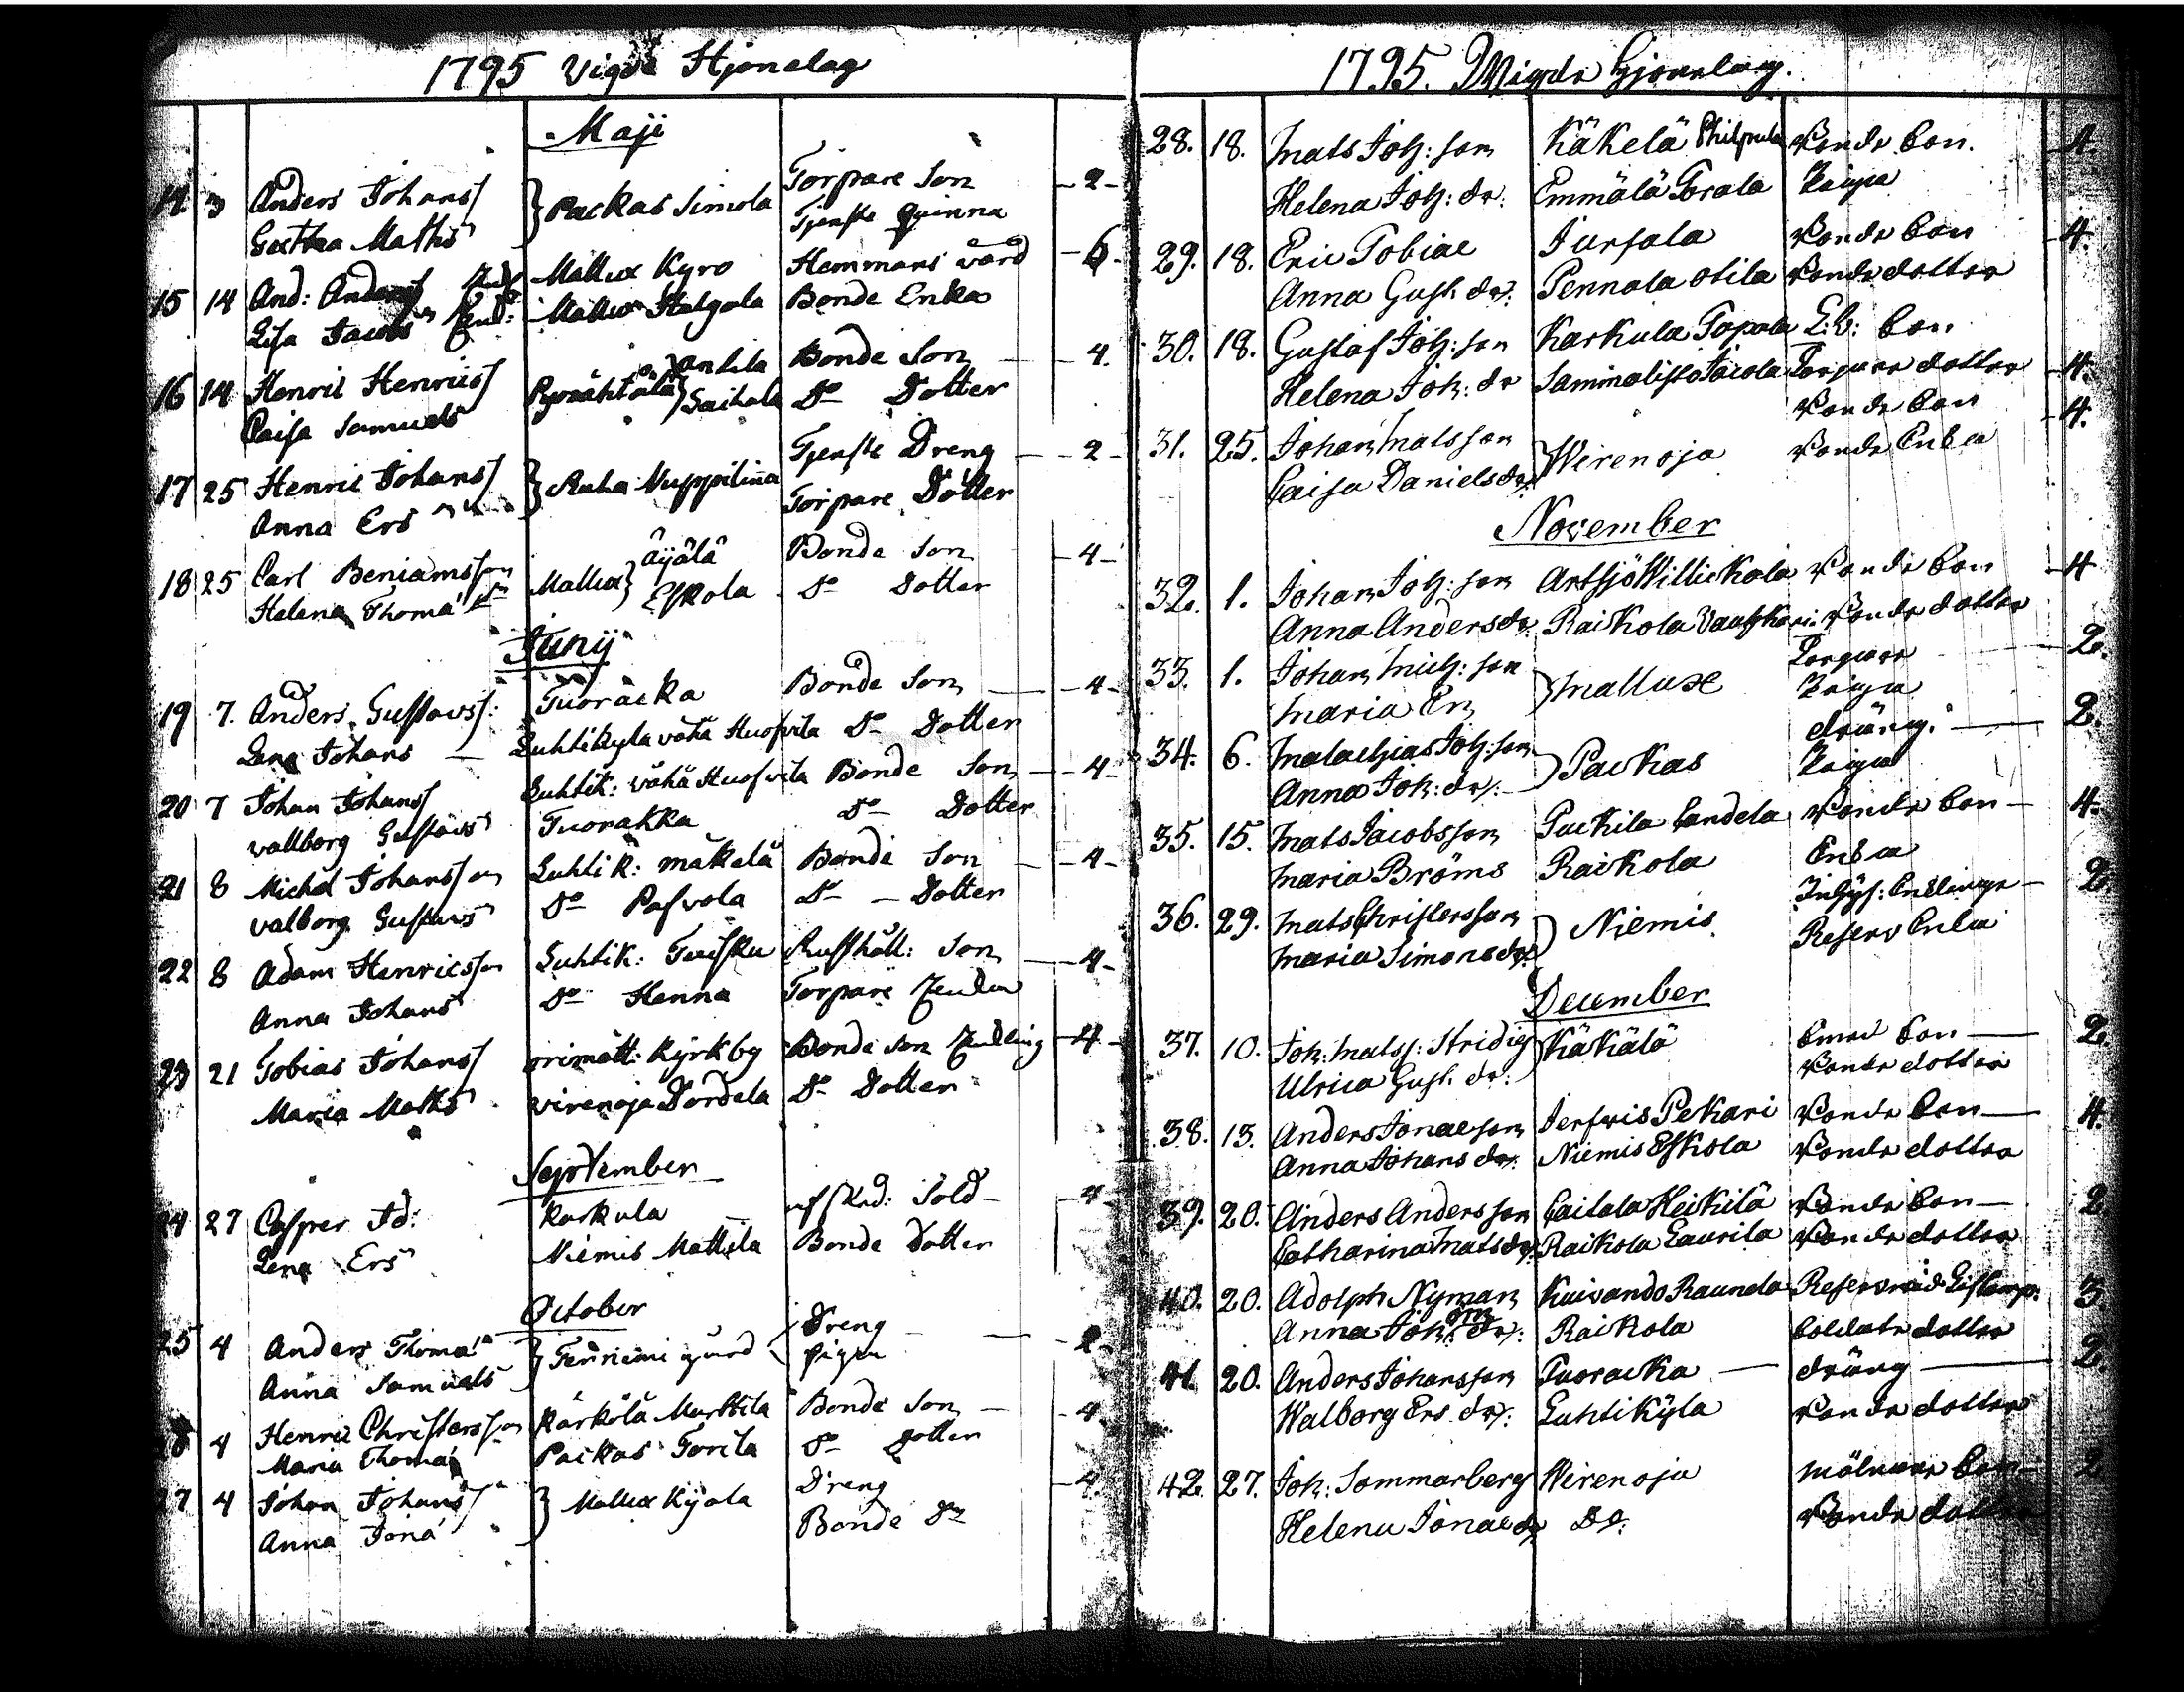 1795 Vigde Hjonelag
Maji
14. 3 Anders Johans } Packas Simola Torpare Son - 2 -
Mats Tjenste Qvinna
15 14 And: Anders Mallux Kyro Hemmans vård - 6 -
Lisa Jacobs Mallux Halgola Bonde Enka
16 14 Henric Henrics Antila Bonde Son - 4.
Caisa Samuels Saitala Do Dotter
17 25 Henric Johans } Tjenste Dreng - 2 -
Anna Ers Torpare Dotter
18 25 Carl Beniamsson Mallux } Äyälä Bonde Son - 4 -
Helena Thomæ Eskola Do Dotter
Junij
19 7. Anders Gustavs: Tuoracka Bonde Son - 4 -
Lena Johans Luhtikyla vähä Huofvila Do Dotter
20 7 Johan Johans Luhtik: vähä Huofvila Bonde Son - 4 -
vallborg Gustavs Tuorakka Do Dotter
21 8 Michel Johansson Luhtik: mäkelä Bonde Son - 4 -
valborg Gustavs Do Pafvola Do - Dotter
22 8 Adam Henricsson Luhtik: Rusthåll: Son - 4 -
Anna Johans Do Hanna Torpare
23 21 Tobias Johans orimatt: Kyrkby Bonde son Enkling - 4 -
Maria Mats virenoja Dordela Do Dotter
September
24 27 Casper Karkula afsked: Sold - 4 -
Lena Ers Niemis Mattila Bonde Dotter
October
25 4 Anders Thomæ } Tenniemi gård Dreng - 2 -
Anna Samuels piga
26 4 Henric Christersson Kärkölä Marttila Bonde Son - 4
Maria Thomæ Packas Torila Do Dotter
27 4 Johan Johans } Mallux Kyala Dreng - 4.
Anna Jonæ Bonde Dr
1795. Wigde Hjonelag.
28. 18. Mats Joh: son Käkelä Philpula Bonde Son. 4.
Helena Joh: dr: Emmälä Torala Piga
29. 18. Eric Tobiae Jursala Bonde Son 4.
Anna Gust. dr: Pennala Otila Bonde dotter
30. 18. Gustaf Joh: son Karkula Topola Son 4.
Helena Joh: dr Sammalisto Jacola Torpare dotter
31. 25. Johan Matsson } Wirenoja Bonde Son 4.
Caisa Danielsdr Bonde Enka
November
32. 1. Johan Joh: son Artsjö Willickala Bonde Son 4
Anna Andersdr: Raikola Bonde dotter
33. 1. Johan Mich: son } Mallux Torpare 2.
Maria Piga
34. 6. Malachias Joh: son } Packas dräng. 2.
Anna Joh: dr: Piga
35. 15. Mats Jacobsson Puckila Bonde Son 4.
Maria Bröms Raikola Enka
36. 29. Mats Christersson } Niemis. Inhys: Enklinge 2.
Maria Simonsdr: Reserv Enka
December
37. 10. Joh: Matss: Stridig } Käkälä Son 2.
Ulrica Gust. dr: Bonde dotter
38. 13. Anders Jonaeson Jerfwis Pekari Bonde Son 4.
Anna Johans dr: Niemis Eskola Bonde dotter
39. 20. Anders Andersson Caitala Heikilä Bonde Son 2
Catharina Matsdr: Raikola Laurila Bonde dotter
40. 20. Adolph Nyman Kuivando Raunela 3.
Anna Joh: dr: Raikola Soldats dotter
41. 20. Anders Johansson Tuoracka dräng 2.
Walborg Ers dr: Luhtikÿla Bonde dotter
42. 27. Joh: Sommarberg Wirenoja Mölnare Son 2
Helena Jonaedr Do: Bonde dotter